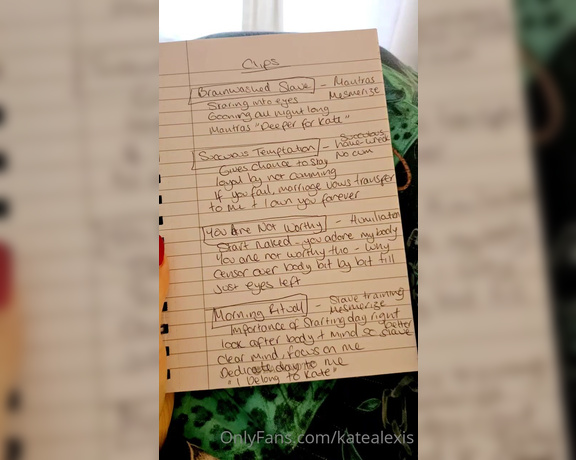 Clips
Brainwashed Slave - Mantras
Mesmerize
Staring into eyes
Gooning all night long
Mantras "Deeper for Kate"
Succubus Temptation - Succubus
Home-wreck
No cum
Gives chance to stay
loyal by not cumming
If you fail, marriage vows transfer
to me + I own you forever
You Are Not Worthy - Humiliation
Start naked - you adore my body
You are not worthy tho - why
Censor over body bit by bit till
just eyes left
Morning Ritual - Slave training
Mesmerize
Importance of starting day right
look after body + mind so better slave
Clear mind, focus on me
Dedicate day to me
"I belong to Kate"
OnlyFans.com/katealexis